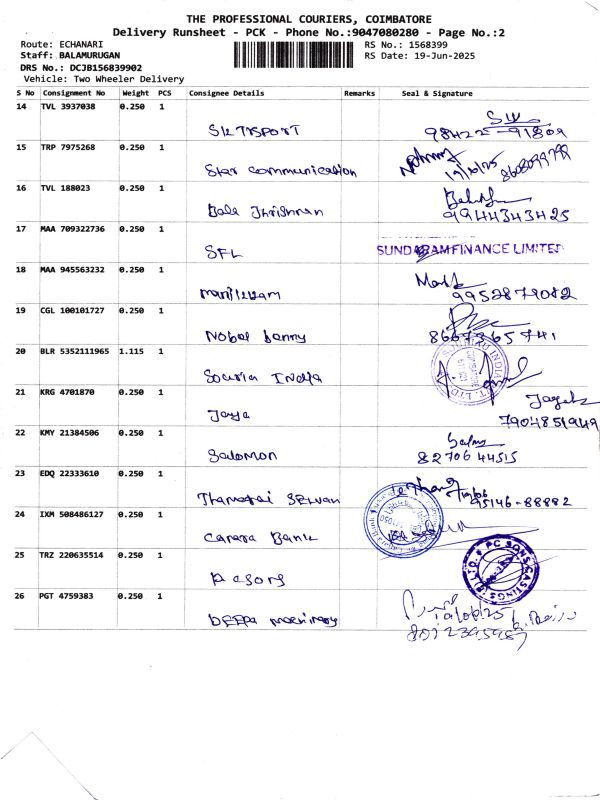 THE PROFESSIONAL COURIERS, COIMBATORE
Delivery Runsheet - PCK - Phone No.:9047080280 - Page No.:2
Route: ECHANARI
RS No.: 1568399
Staff: BALAMURUGAN
RS Date: 19-Jun-2025
DRS No.: DCJB156839902
Vehicle: Two Wheeler Delivery
S No Consignment No Weight PCS Consignee Details Remarks Seal & Signature
14 TVL 3937038 0.250 1
98422-91809
15 TRP 7975268 0.250 1
Star communication 19/6/25
16 TVL 188023 0.250 1
Bala 9944343425
17 MAA 709322736 0.250 1
SFL SUNDARAM FINANCE LIMITED
18 MAA 945563232 0.250 1
9952879082
19 CGL 100101727 0.250 1
Nobal 8667365741
20 BLR 5352111965 1.115 1
India
21 KRG 4701870 0.250 1
Jaya 7904851949
22 KMY 21384506 0.250 1
Salomon 8270644515
23 EDQ 22333610 0.250 1
Selvan 95146-88882
24 IXM 508486127 0.250 1
Canara Bank
25 TRZ 220635514 0.250 1
PC SONS CASTINGS
26 PGT 4759383 0.250 1
Deepa 19/06/25